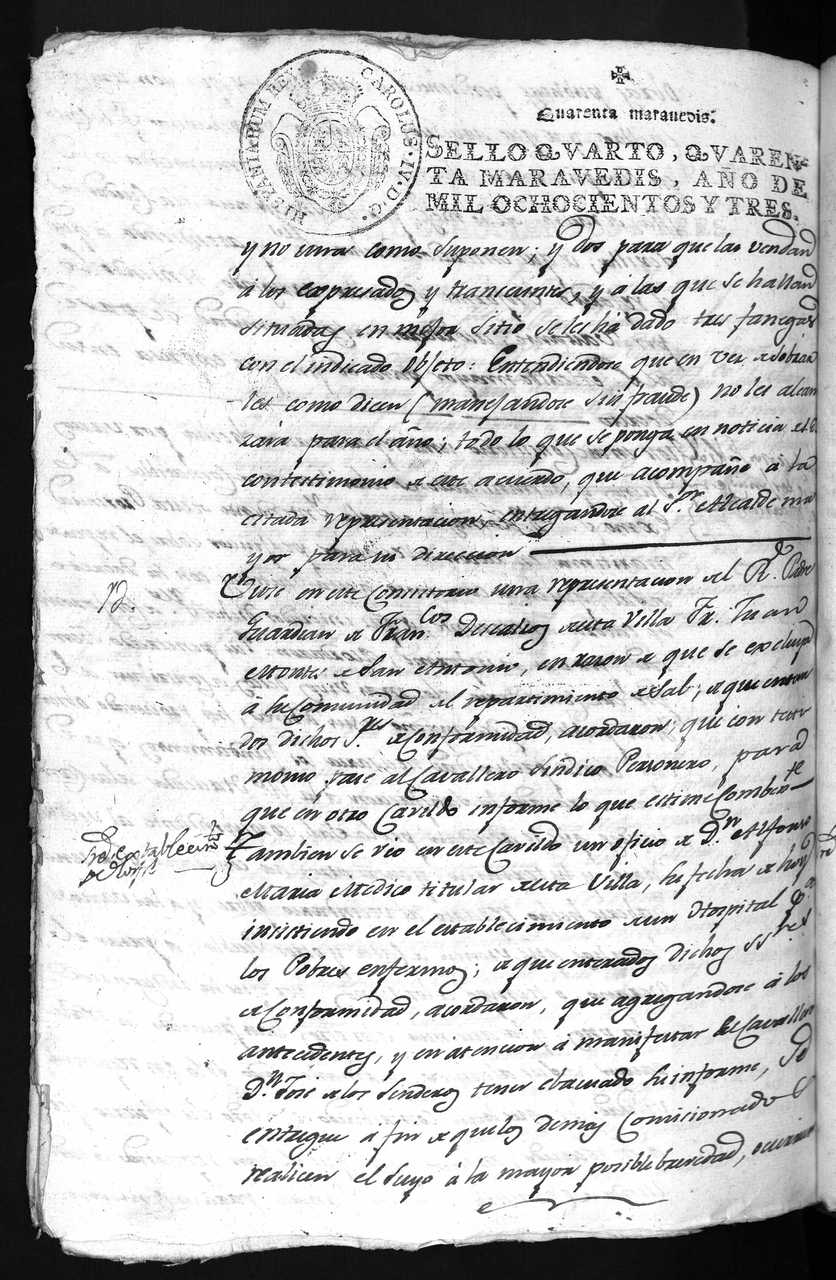 HISPANIARUM REX CAROLUS·IV·D·G·
Quarenta maravedis.
SELLO QVARTO, QVAREN-
TA MARAVEDIS, AÑO DE
MIL OCHOCIENTOS Y TRES.
y no una como suponen; y dos para que las vendan
á los expresados y transeuntes, y á las que se hallan
situadas en mejor sitio se les há dado tres fanegas
con el indicado objeto: Entendiendose que en vez de sobrar
les como dicen (manejandose sin fraude) no les alcan
zará para el año; todo lo que se ponga en noticia
con testimonio de este acuerdo, que acompañe a la
citada representacion, entregandose al Sr. Alcalde ma
yor para su direccion
Yd.
Viose en este Consistorio una representacion del Rdo. Padre
Guardian de Francos Descalzos de esta Villa Fr. Juan
Montes de San Antonio, en razon de que se excluya
á su Comunidad del repartimiento de Sal; de que entera
dos dichos Sres de Conformidad, acordaron; que con testi
monio pase al Cavallero Sindico Personero, para
que en otro Cavildo informe lo que estime Combte
Sre. establecimto
de Hospl.
Tambien se veo en este Cavildo un oficio de Dn. Alfonso
Maria Medico titular de esta Villa, su fecha de hoy
insistiendo en el establecimiento de un Hospital pa
los Pobres enfermos; de que enterados dichos SSres
de Conformidad, acordaron, que agregandose á los
antecedentes, y en atencion á manifestar el Cavallero
Dn. Jose de los Senderos tener ebacuado su informe, se
entregue á fin de que los demas Comicionados
realicen el suyo á la mayor posible brevedad,